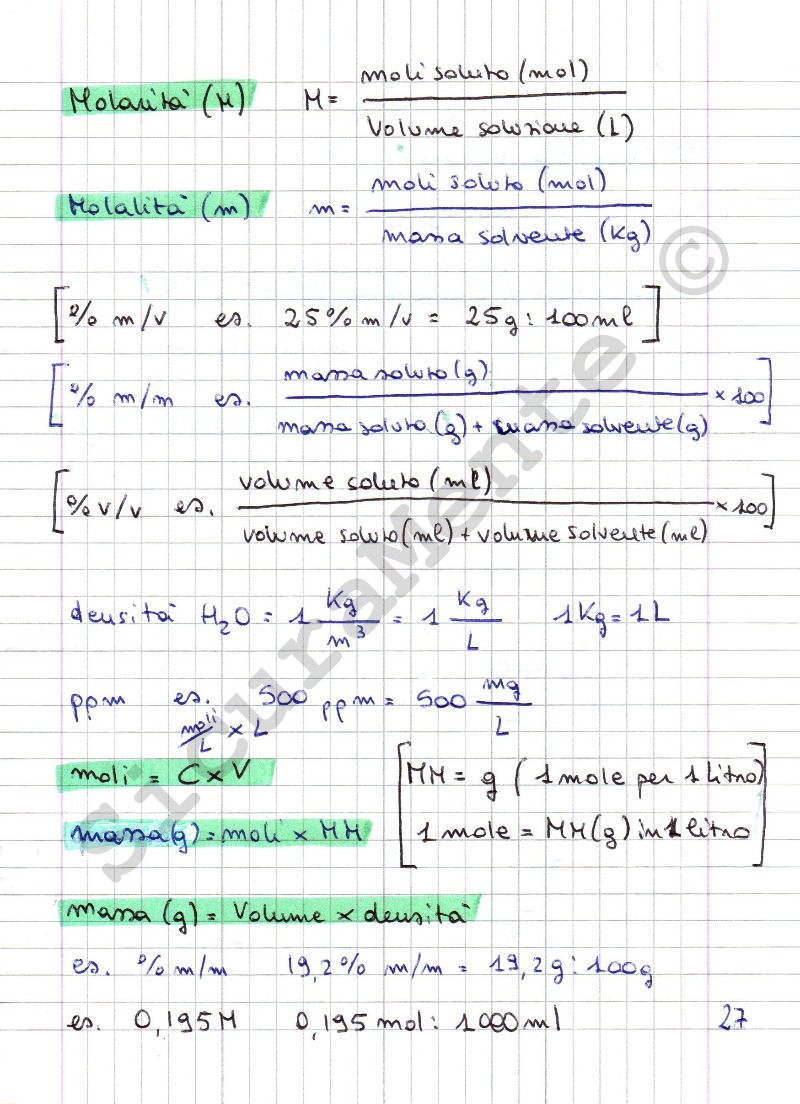 Molarità (M) M = moli soluto (mol)
Volume soluzione (L)
Molalità (m) m = moli soluto (mol)
massa solvente (Kg)
[% m/v es. 25% m/v = 25g : 100ml]
[% m/m es. massa soluto (g)
massa soluto (g) + massa solvente (g) × 100]
[% v/v es. volume soluto (ml)
volume soluto (ml) + volume solvente (ml) × 100]
densità H₂O = 1 Kg/m³ = 1 Kg/L 1Kg = 1L
ppm es. 500 ppm = 500 mg/L
moli/L × L
moli = C × V
[MM = g (1 mole per 1 litro)
massa (g) = moli × MM
1 mole = MM(g) in 1 litro]
massa (g) = Volume × densità
es. % m/m 19,2% m/m = 19,2g : 100g
es. 0,195M 0,195 mol : 1000ml 27
SicuraMente ©